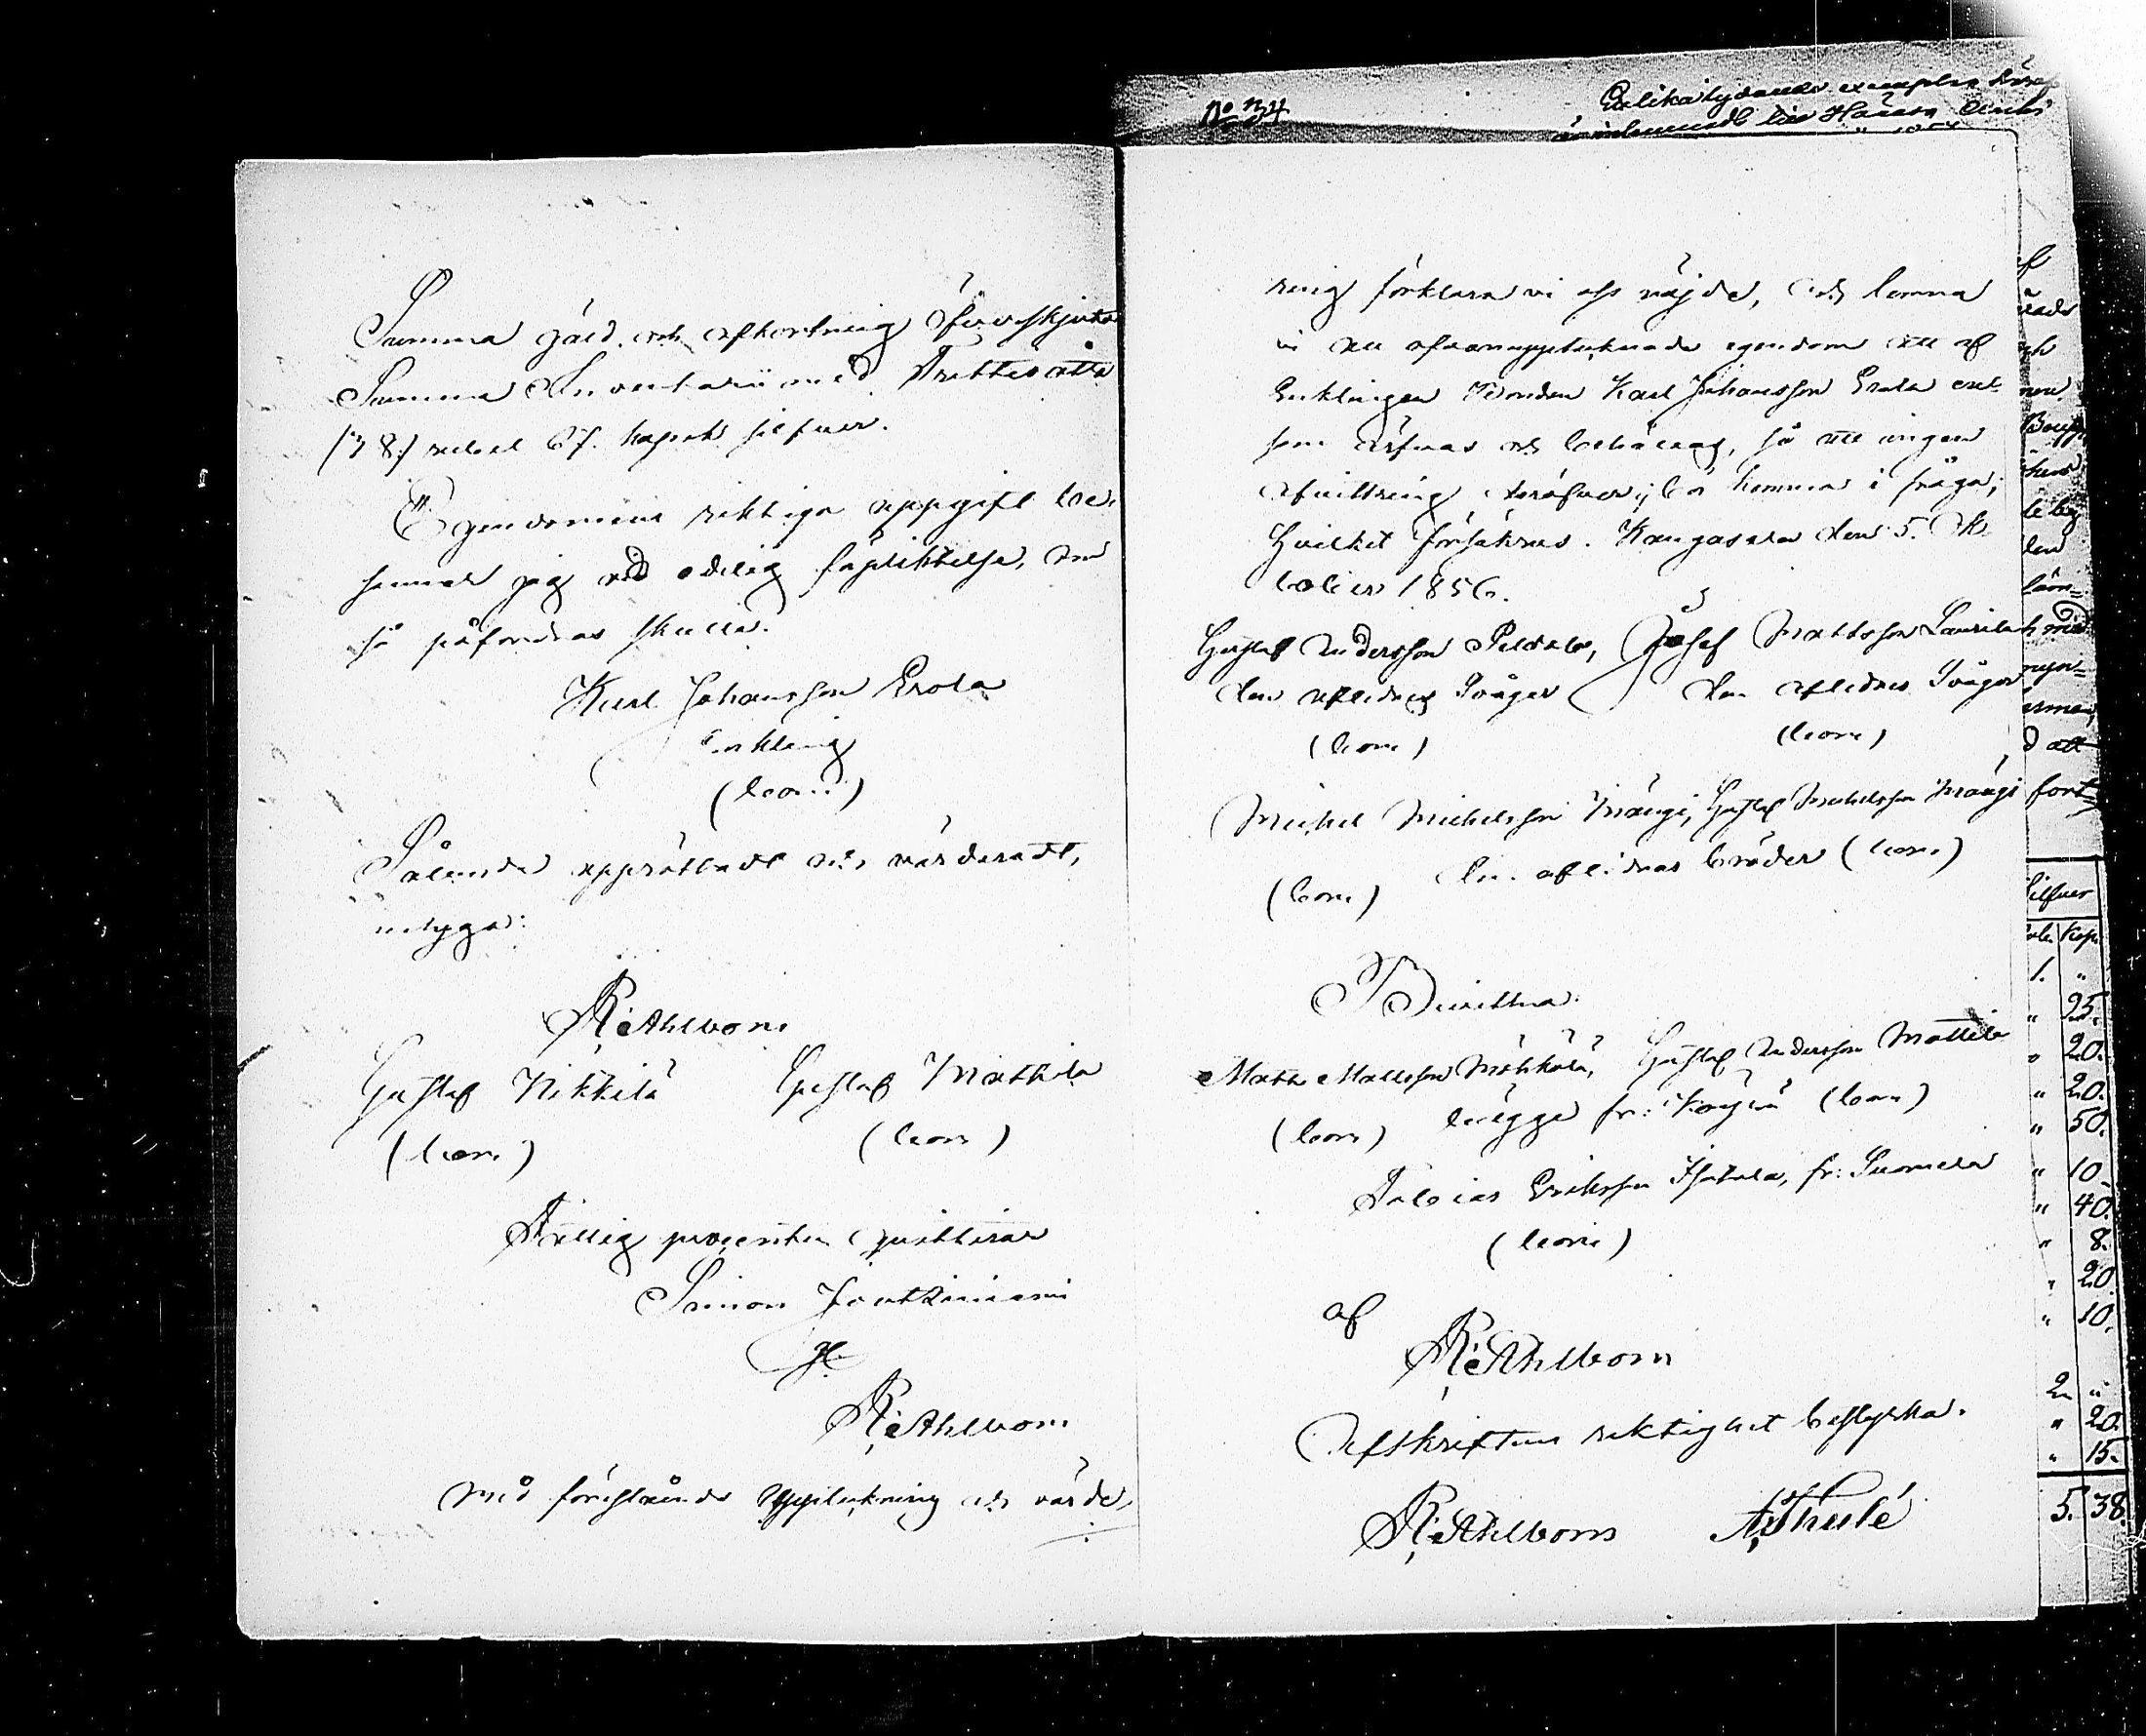 Summa gäld och afkortning öfverskjuta
Summa Inventarii med Trettioåtta
/38/ rubel 67. kopek silfver.
Egendomens riktiga uppgift be-
sannar jag vid edelig förpliktelse, om
så påfordras skulle.
Karl Johansson Erola
enkling
(bom)
Sålunda upprättadt och värderadt,
intyga:
R: Ahlbom
Gustaf Nikkilä Gustaf Mattila
(bom) (bom)
Fattig procenten quitterar
Simon Joutziniemi
R: Ahlbom
Med förestående uppteckning och värde-
ring förklara vi oss nöjde, och lemna
vi all ofvanupptecknade egendom att af
Enklingen Bonden Karl Johansson Erola en-
sam ärfvas och behållas, så att ingen
afvittring deröfver ej bör komma i fråga;
hvilket försäkras. Kangasala den 5. Ok-
tober 1856.
Gustaf Andersson Peltola, Josef Mattsson Laurila
den aflidnes Svåger den aflidnes Svåger
(bom) (bom)
Michel Michelsson Mängi, Gustaf Michelsson Mängi
(bom) den aflidnas bröder (bom)
Bevittna:
Matts Mattsson Möhkölä, Gustaf Andersson Mattila
(bom) begge fr: (bom)
Tobias Eriksson Isotalo, fr: Suomela
(bom)
af
R: Ahlbom
Afskriftens riktighet bestyrka.
R: Ahlbom A. Thulé
No 34
Enlika lydande exemplar
Silfver
Kop.
1. "
" 25.
" 20.
" 20.
" 50.
" 10.
" 40.
" 8.
" 20
" 10.
2. "
" 20.
" 15.
5. 38.